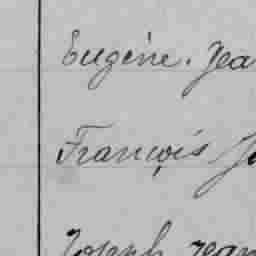 Eugène. Jea
François Je
Joseph Jean